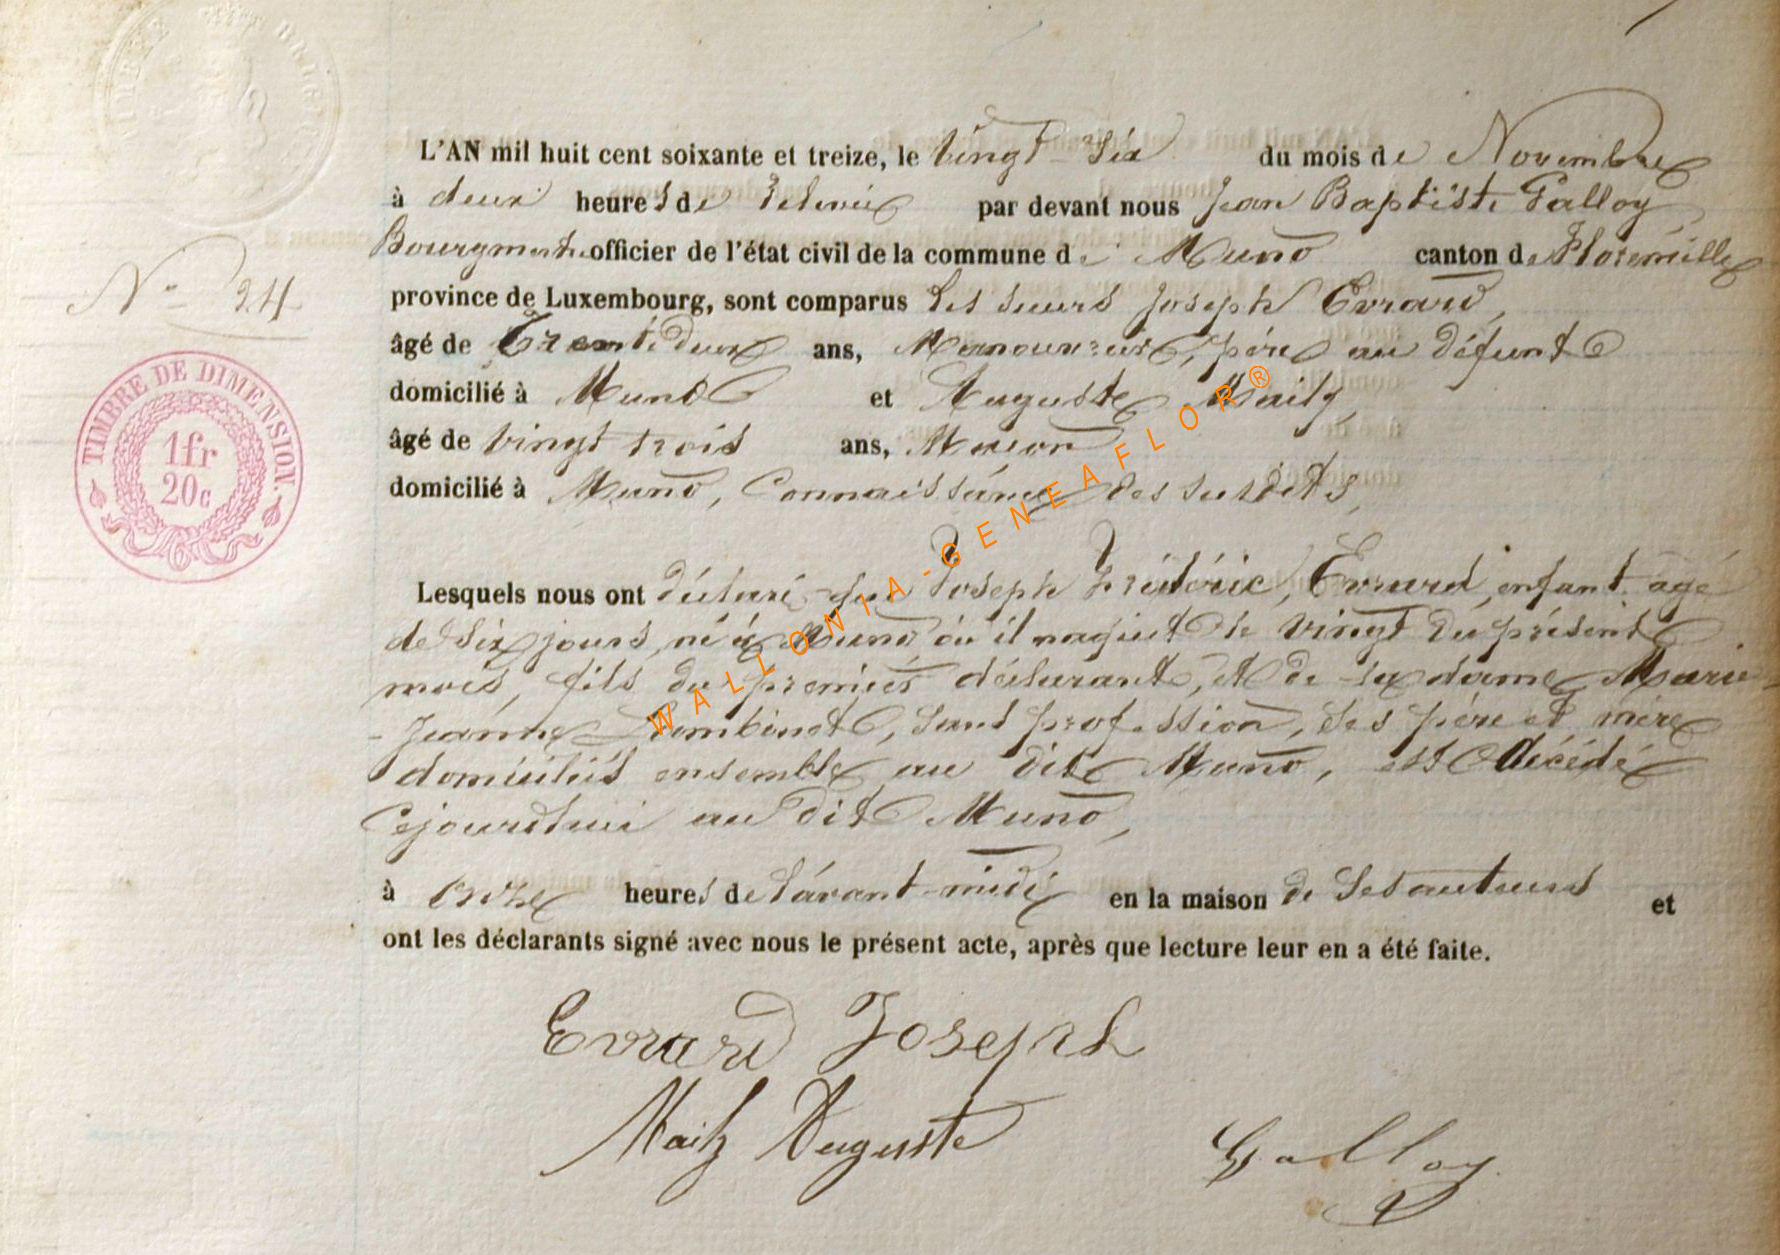 L'AN mil huit cent soixante et treize, le vingt-six du mois de Novembre
à deux heures de relevée par devant nous Jean Baptiste Galloy
Bourgmestre officier de l'état civil de la commune de Muno canton de Florenville
province de Luxembourg, sont comparus les sieurs Joseph Evrard,
N° 24
âgé de Trente deux ans, Manouvrier, père au défunt
domicilié à Muno et Auguste Maily
âgé de vingt trois ans, Maçon
domicilié à Muno, Connaissance des susdits,
TIMBRE DE DIMENSION.
1fr
20c
Lesquels nous ont déclaré que Joseph Frédéric, Evrard, enfant agé
de six jours, né à Muno, où il naquit le vingt du présent
mois, fils du premier déclarant, et de sa dame Marie-
-Jeanne, sans profession, ses père et mère
domiciliés ensemble au dit Muno, est décédé
Cejourd'hui au dit Muno,
à onze heures de l'avant-midi en la maison de ses auteurs et
ont les déclarants signé avec nous le présent acte, après que lecture leur en a été faite.
Evrard Joseph
Maily Auguste
Galloy
WALLONIA-GENEAFLOR®